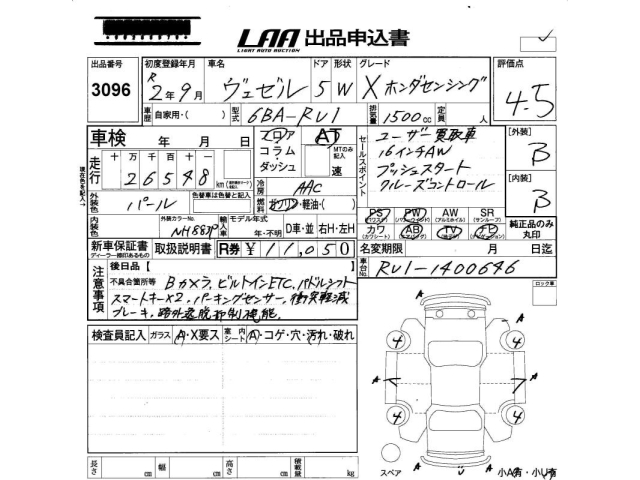 LAA 出品申込書
LIGHT AUTO AUCTION
出品番号 3096
初度登録年月 R 2年9月
車名 ヴェゼル
ドア 5 形状 W
グレード X ホンダセンシング
評価点 4.5
車歴 自家用・( )
型式 6BA-RU1
排気量 1500cc
定員 人
車検 年 月 日
走行 十万千百十一 26548 km
フロア コラム・ダッシュ
AT
MTのみ記入 速
セールスポイント
ユーザー買取車
16インチAW
プッシュスタート
クルーズコントロール
[外装] B
[内装] B
外装色 パール
色替車は色替と記入
冷房 AAC
燃料 ガソリン・軽油・( )
PS PW AW SR
カワ AB TV ナビ
純正品のみ丸印
内装色
外装カラーNo. NH883P
輸入車 モデル年式 年・不明
D車・並 右H・左H
新車保証書 取扱説明書
ディーラー捺印あるもの
R券 ¥11,050
名変期限 月 日迄
車台No. RU1-1400646
注意事項
後日品 [
不具合箇所等 Bカメラ、ビルトインETC、パドルシフト
スマートキーX2、パーキングセンサー、衝突軽減
ブレーキ、路外逸脱抑制機能
ロック車
検査員記入 ガラス A・X要ス 室内シート A・コゲ・穴・汚れ・破れ
A A
4 4
A A
4 4
A A
スペア
小A有・小U有
長さ cm 幅 cm 高さ cm 積載量 kg